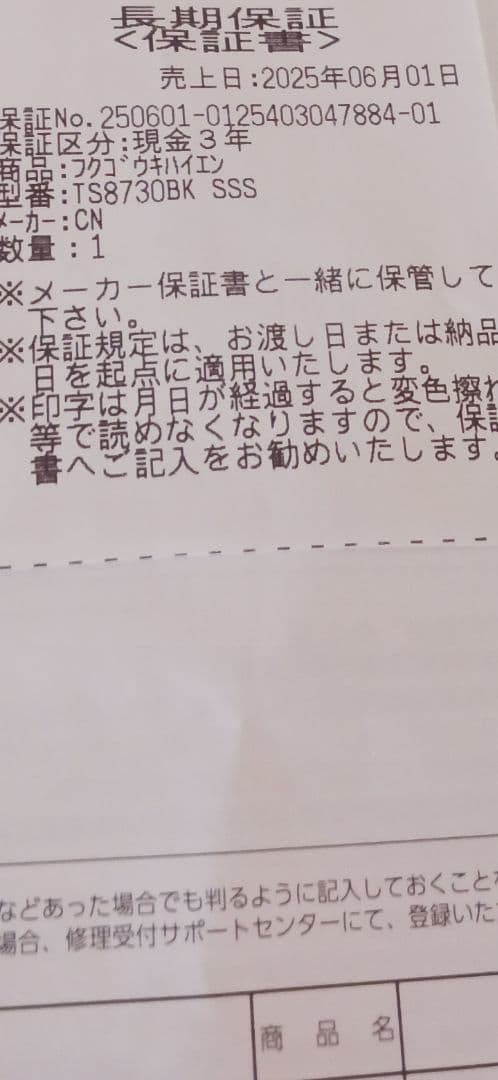 長期保証
<保証書>
売上日:2025年06月01日
保証No.250601-0125403047884-01
保証区分:現金3年
商品:フクゴウキハイエン
型番:TS8730BK SSS
メーカー:CN
数量:1
※メーカー保証書と一緒に保管して
下さい。
※保証規定は、お渡し日または納品
日を起点に適用いたします。
※印字は月日が経過すると変色擦れ
等で読めなくなりますので、保証
書へご記入をお勧めいたします。
などあった場合でも判るように記入しておくことを
場合、修理受付サポートセンターにて、登録いた
商品名